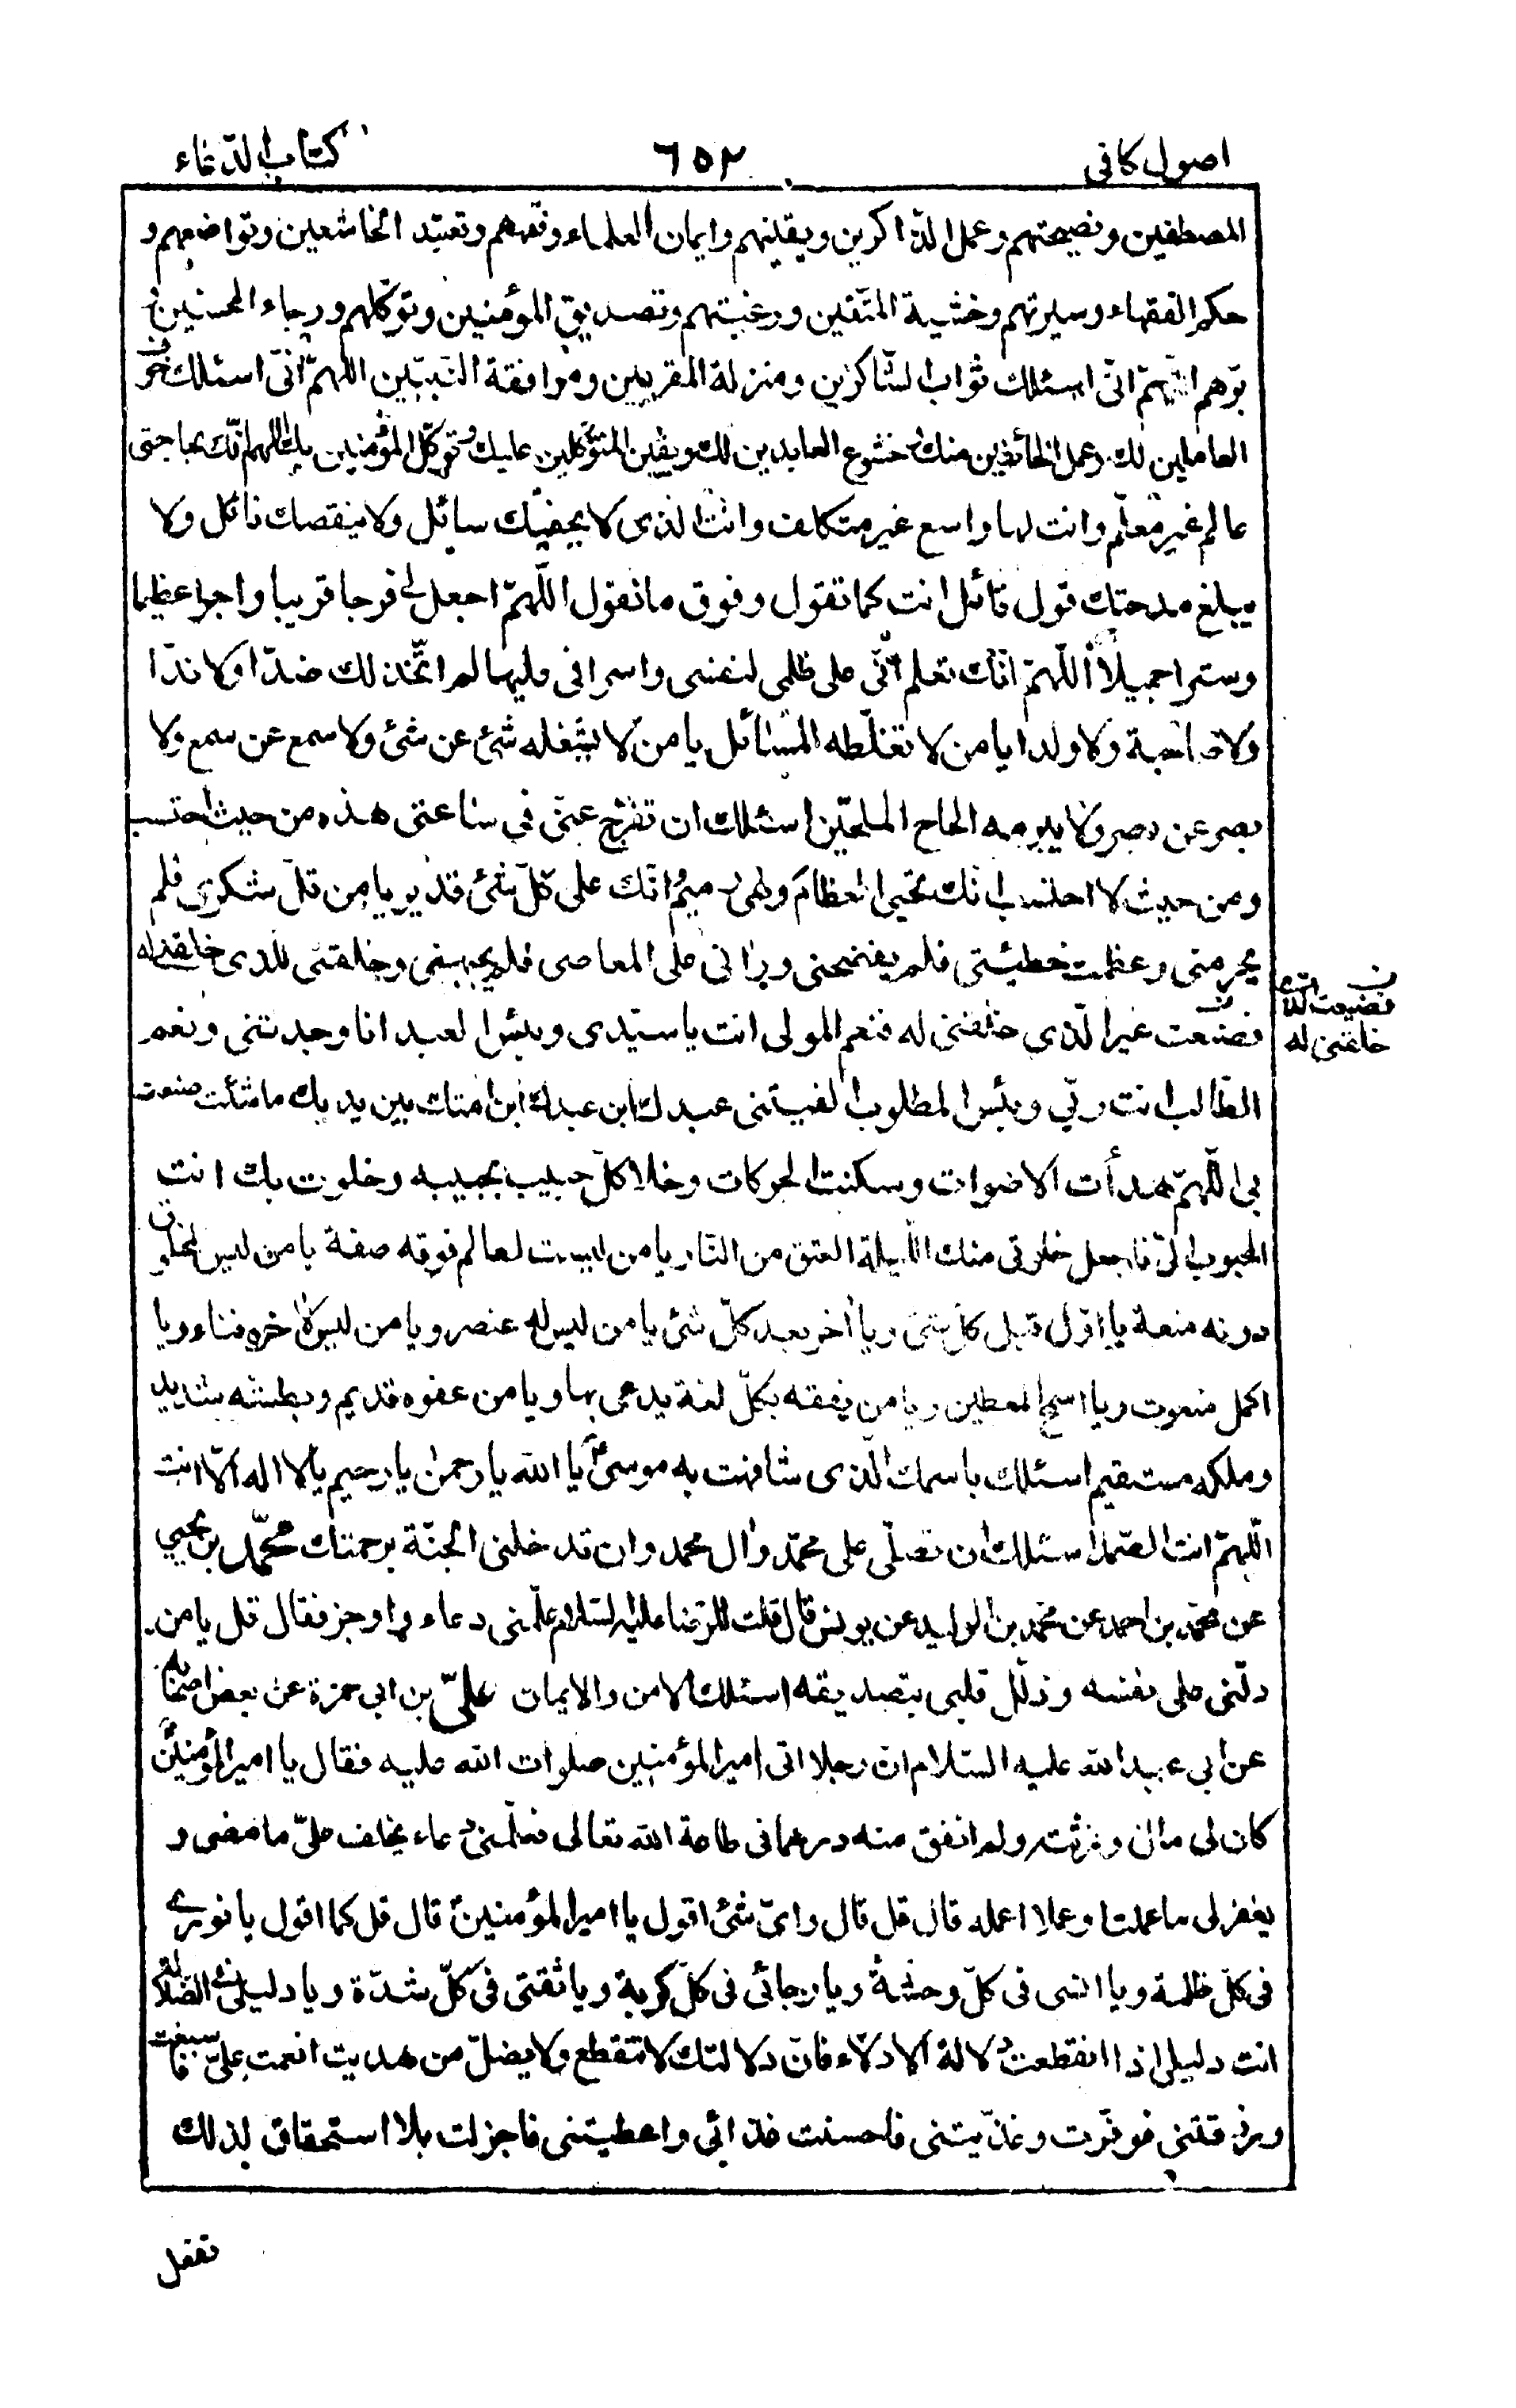 اصول كافى ٦٥٢ كتاب الدعاء
المصطفين ونصيحتهم وعمل الذّاكرين ويقينهم وايمان العلماء وفقههم وتعبّد الخاشعين وتواضعهم و
حكم الفقهاء وسيرتهم وخشية المتّقين ورغبتهم وتصديق المؤمنين وتوكّلهم ورجاء المحسنين و
برّهم اللّهمّ انّى اسئلك ثواب الشّاكرين ومنزلة المقربين ومرافقة النّبيّين اللّهمّ انّى اسئلك خوف
العاملين لك وعمل الخائفين منك وخشوع العابدين لك ويقين المتوكّلين عليك وتوكّل المؤمنين بك اللهم انّك بحاجتى
عالم غير معلّم وانت لها واسع غير متكلف وانت الذى لا يحفيك سائل ولا ينقصك نائل ولا
يبلغ مدحتك قول قائل انت كما تقول وفوق ما نقول اللّهمّ اجعل لى فرجا قريبا واجرا عظيما
وسترا جميلا اللّهمّ انّك تعلم انّى على ظلمى لنفسى واسرافى عليها لم اتّخذ لك ضدّا ولا ندّا
ولا صاحبة ولا ولدا يا من لا تغلّطه المسائل يا من لا يشغله شئ عن شئ ولا سمع عن سمع ولا
بصر عن بصر ولا يبرمه الحاح الملحّين اسئلك ان تفرّج عنّى فى ساعتى هذه من حيث احتسب
ومن حيث لا احتسب انّك تحيى العظام وهى رميم انّك على كلّ شئ قدير يا من قلّ شكرى فلم
يحرمنى وعظمت خطيئتى فلم يفضحنى ورانى على المعاصى فلم يجبهنى وخلقنى للذى خلقنى له
فصنعت غير الّذى خلقنى له فنعم المولى انت يا سيّدى وبئس العبد انا وجدتنى ونعم
فضيعت الذى
خلقنى له
الطّالب انت ربّى وبئس المطلوب الفيتنى عبدك ابن عبدك ابن امتك بين يديك ما شئت صنعت
بى اللّهمّ هدأت الاصوات وسكنت الحركات وخلا كلّ حبيب بحبيبه وخلوت بك انت
المحبوب الىّ فاجعل خلوتى منك اللّيلة العتق من النّار يا من ليست لعالم فوقه صفة يا من ليس لمخلوق
دونه منعة يا اوّل قبل كلّ شئ ويا آخر بعد كلّ شئ يا من ليس له عنصر ويا من ليس لآخره فناء ويا
اكمل منعوت ويا اسمح المعطين ويا من يفقه بكلّ لغة يدعى بها ويا من عفوه قديم وبطشه شديد
وملكه مستقيم اسئلك باسمك الّذى شافهت به موسى يا الله يا رحمن يا رحيم يا لا اله الّا انت
اللّهمّ انت الصّمد اسئلك ان تصلّى على محمّد وآل محمد وان تدخلنى الجنّة برحمتك محمّد بن يحيي
عن محمّد بن احمد عن محمّد بن الوليد عن يونس قال قلت للرّضا عليه السّلام علّمنى دعاء واوجز فقال قل يا من
دلّنى على نفسه وذلّل قلبى بتصديقه اسئلك الامن والايمان علىّ بن ابى حمزة عن بعض اصحابه
عن ابى عبد الله عليه السّلام انّ رجلا اتى امير المؤمنين صلوات الله عليه فقال يا امير المؤمنين
كان لى مال ورثته ولم انفق منه درهما فى طاعة الله تعالى فعلّمنى دعاء يخلف علىّ ما مضى و
يغفر لى ما عملت او عملا اعمله قال قل قال واىّ شئ اقول يا امير المؤمنين قال قل كما اقول يا نورى
فى كلّ ظلمة ويا انسى فى كلّ وحشة ويا رجائى فى كلّ كربة ويا ثقتى فى كلّ شدّة ويا دليلى فى الضّلالة
انت دليلى اذا انقطعت دلالة الادلّاء فانّ دلالتك لا تنقطع ولا يضلّ من هديت انعمت علىّ فاسبغت
ورزقتنى فوفّرت وغذّيتنى فاحسنت غذائى واعطيتنى فاجزلت بلا استحقاق لذلك
تفعل